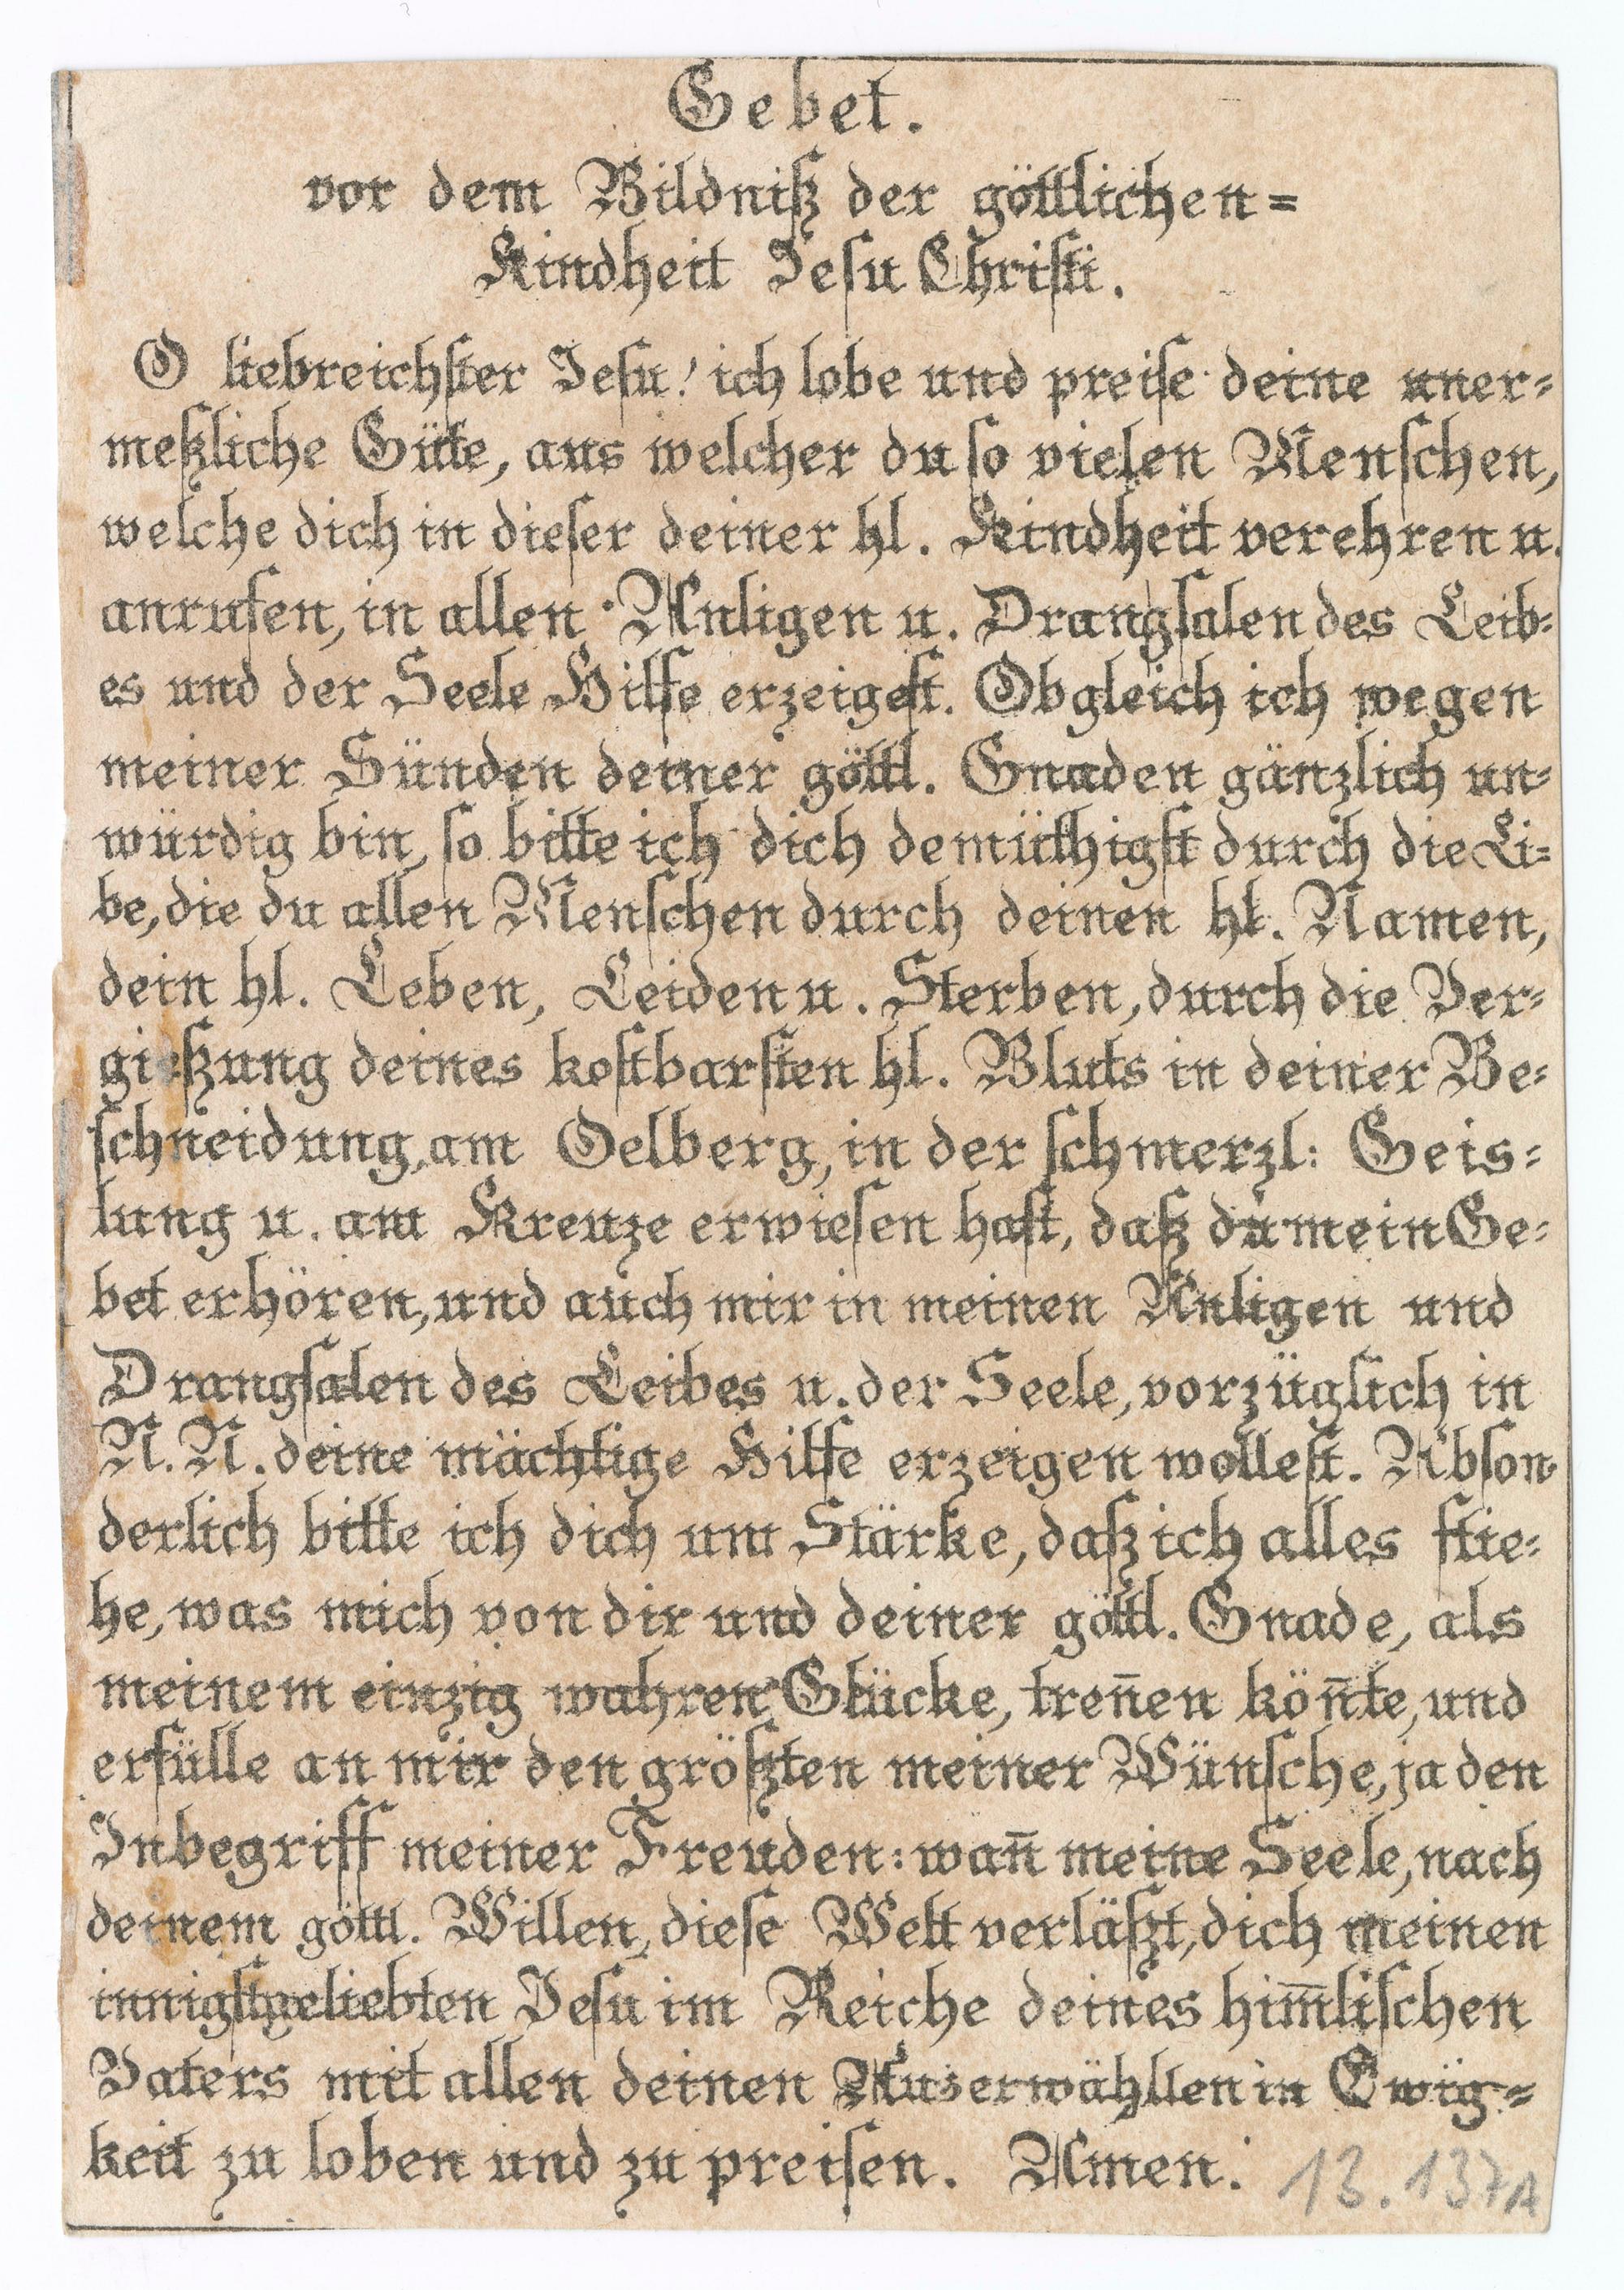 Gebet.
vor dem Bildniß der göttlichen=
Kindheit Jesu Christi.
O liebreichster Jesu! ich lobe und preise deine uner=
meßliche Güte, aus welcher du so vielen Menschen,
welche dich in dieser deiner hl. Kindheit verehren u.
anrufen, in allen Anligen u. Drangsalen des Leib=
es und der Seele Hilfe erzeigest. Obgleich ich wegen
meiner Sünden deiner göttl. Gnaden gänzlich un=
würdig bin, so bitte ich dich demüthigst durch die Li=
be, die du allen Menschen durch deinen hl. Namen,
dein hl. Leben, Leiden u. Sterben, durch die Ver=
gießung deines kostbarsten hl. Bluts in deiner Be=
schneidung, am Oelberg, in der schmerzl: Geis=
lung u. am Kreuze erwiesen hast, daß du mein Ge=
bet erhören, und auch mir in meinen Anligen und
Drangsalen des Leibes u. der Seele, vorzüglich in
N. N. deine mächtige Hilfe erzeigen wollest. Abson=
derlich bitte ich dich um Stärke, daß ich alles flie=
he, was mich von dir und deiner göttl. Gnade, als
meinem einzig wahren Glücke, treñen köñte, und
erfülle an mir den größten meiner Wünsche, ja den
Inbegriff meiner Freuden: wañ meine Seele, nach
deinem göttl. Willen, diese Welt verläßt, dich meinen
innigstgeliebten Jesu im Reiche deines him̄lischen
Vaters mit allen deinen Auserwählten in Ewig=
keit zu loben und zu preisen. Amen.
13.137A